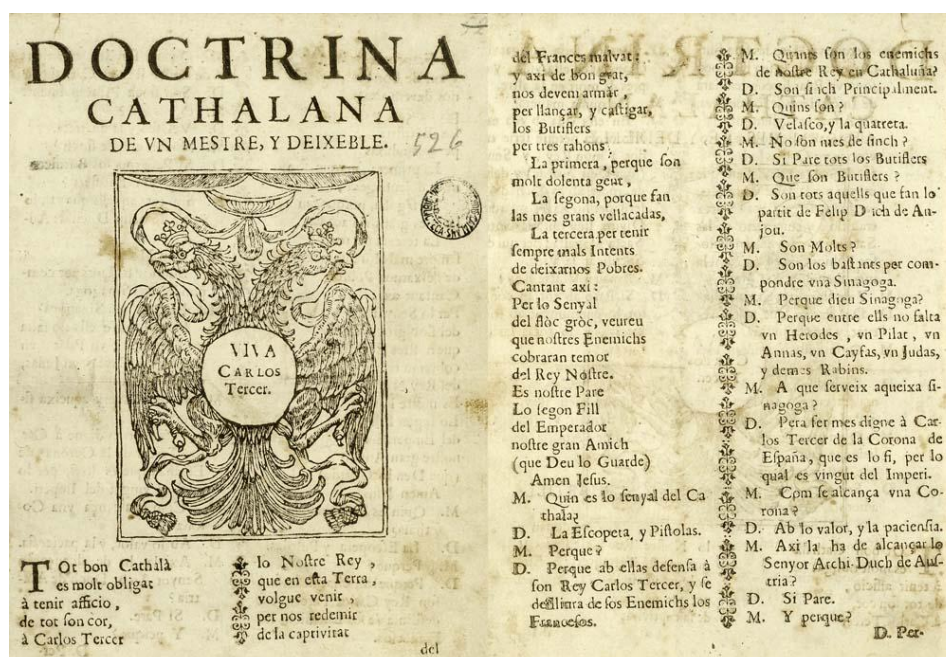 DOCTRINA
CATHALANA
DE VN MESTRE, Y DEIXEBLE.
526
VIVA
CARLOS
Tercer.
TOt bon Cathalà
es molt obligat
à tenir afficio,
de tot ſon cor,
à Carlos Tercer
lo Noſtre Rey,
que en eſta Terra,
volgue venir,
per nos redemir
de la captivitat
del
del Frances malvat:
y axi de bon grat,
nos devem armar,
per llançar, y caſtigar,
los Butiflers
per tres rahons.
La primera, perque ſon
molt dolenta gent,
La ſegona, porque fan
las mes grans vellacadas,
La tercera per tenir
ſempre mals Intents
de deixarnos Pobres.
Cantant axi:
Per lo Senyal
del flòc gròc, veureu
que noſtres Enemichs
cobraran temor
del Rey Noſtre.
Es noſtre Pare
Lo ſegon Fill
del Emperador
noſtre gran Amich
(que Deu lo Guarde)
Amen Jeſus.
M. Quin es lo ſenyal del Ca
thala?
D. La Eſcopeta, y Piſtolas.
M. Perque?
D. Perque ab ellas defenſa à
ſon Rey Carlos Tercer, y ſe
deslliura de ſos Enemichs los
Franceſos.
M. Quints ſon los enemichs
de noſtre Rey en Cathaluña?
D. Son ſinch Principalment.
M. Quins ſon?
D. Velaſco, y la quatreta.
M. No ſon mes de ſinch?
D. Si Pare tots los Butiflers
M. Que ſon Butiflers?
D. Son tots aquells que fan lo
partit de Felip D ich de An-
jou.
M. Son Molts?
D. Son los baſtants per com-
pondre vna Sinagoga.
M. Perque dieu Sinagoga?
D. Perque entre ells no falta
vn Herodes, vn Pilat, vn
Annas, vn Cayfas, vn Judas,
y demes Rabins.
M. A que ſerveix aqueixa ſi-
nagoga?
D. Pera fer mes digne à Car-
los Tercer de la Corona de
Eſpaña, que es lo fi, per lo
qual es vingut del Imperi.
M. Com ſe alcança vna Co-
rona?
D. Ab lo valor, y la pacienſia.
M. Axi la ha de alcançar lo
Senyor Archi-Duch de Auſ-
tria?
D. Si Pare.
M. Y perque?
D. Per-